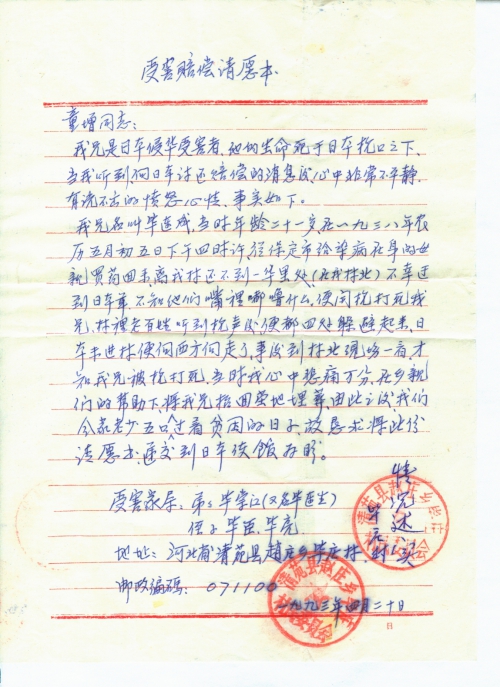 受害赔偿请愿本
童增同志：
我兄是日军侵华受害者，他的生命死于日军枪口之下，
当我听到向日军讨还赔偿的消息后心中非常不平静，
有说不出的愤怒心情，事实如下。
我兄名叫毕连成，当时年龄二十一岁，在一九三八年农
历五月初五日下午四时许，从保定市给染病在身的母
亲买药回来，离我村还不到一华里处（在我村北）不幸遇
到日军，不知他们嘴裡嘟噜什么，便开枪打死我
兄，村裡老百姓听到枪声后便都四处躲避起来，日
军未进村便向西方向走了，事后到村北现场一看才
知我兄被枪打死，当时我心中悲痛万分，在乡亲
们的帮助下，将我兄抬回茔地埋葬，由此之后，我们
全家老少五口过着贫困的日子，故恳求将此份
请愿书递交到日本使馆存盼。
受害家属：弟：毕掌江（又名毕连生）
侄子 毕臣、毕亮
地址：河北省清苑县赵庄乡毕庄村
邮政编码：071100
一九九三年四月二十日
情况述实
清苑县赵庄乡毕庄
日